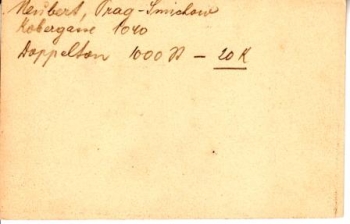 Neubert, Prag-Smichow
Kobergane 1040
Doppelton 1000 St – 20 K